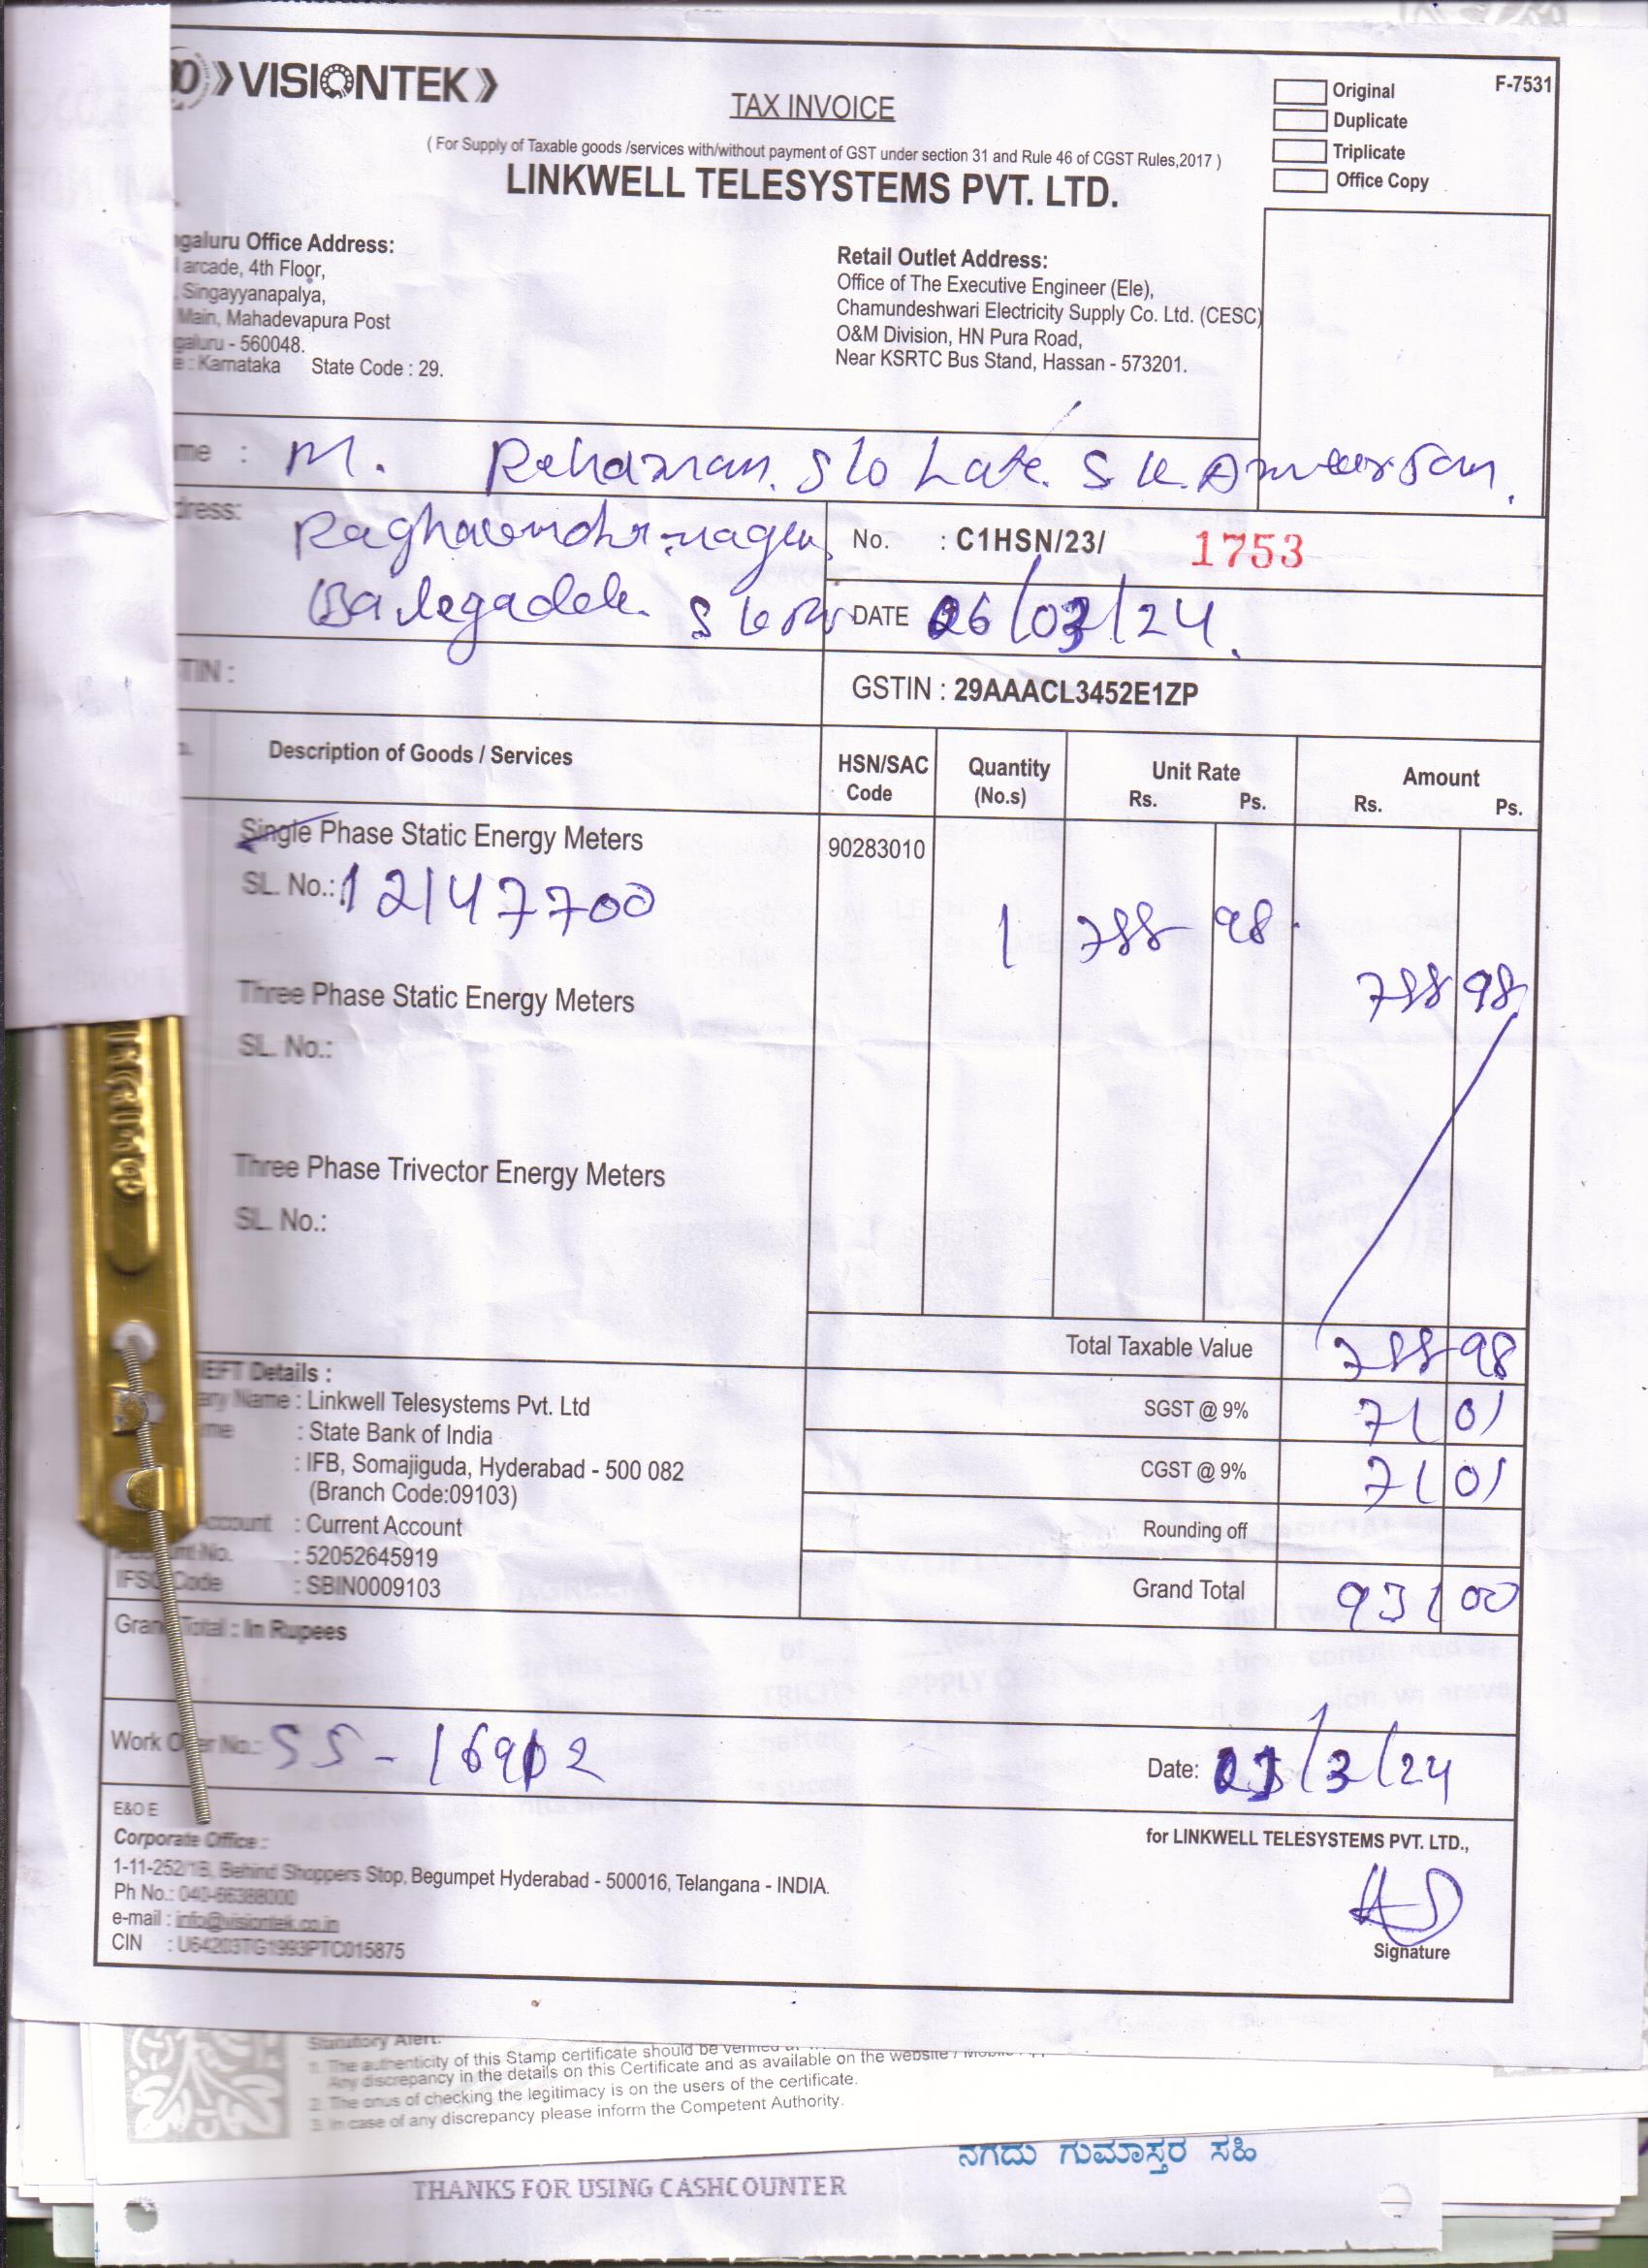 VISIONTEK
TAX INVOICE
Original
F-7531
Duplicate
Triplicate
Office Copy
( For Supply of Taxable goods /services with/without payment of GST under section 31 and Rule 46 of CGST Rules,2017 )
LINKWELL TELESYSTEMS PVT. LTD.
Office Address:
arcade, 4th Floor,
Singayyanapalya,
Main, Mahadevapura Post
- 560048.
: Karnataka State Code : 29.
Retail Outlet Address:
Office of The Executive Engineer (Ele),
Chamundeshwari Electricity Supply Co. Ltd. (CESC)
O&M Division, HN Pura Road,
Near KSRTC Bus Stand, Hassan - 573201.
: M. Rehaman. S/o Late. S.K.
No. : C1HSN/23/ 1753
DATE 06/03/24.
GSTIN : 29AAACL3452E1ZP
Description of Goods / Services
HSN/SAC Code
Quantity (No.s)
Unit Rate Rs. Ps.
Amount Rs. Ps.
Single Phase Static Energy Meters 90283010
SL. No.: 12147700
1 788 98
788 98
Three Phase Static Energy Meters
SL. No.:
Three Phase Trivector Energy Meters
SL. No.:
Total Taxable Value 788 98
SGST @ 9% 71 01
CGST @ 9% 71 01
Rounding off
Grand Total 931 00
Details :
Name : Linkwell Telesystems Pvt. Ltd
: State Bank of India
: IFB, Somajiguda, Hyderabad - 500 082
(Branch Code:09103)
Account : Current Account
No. : 52052645919
IFSC Code : SBIN0009103
Grand Total : In Rupees
Work Order No.: SS-16912
Date: /3/24
E&O E
Corporate Office :
1-11-252/1B, Behind Shoppers Stop, Begumpet Hyderabad - 500016, Telangana - INDIA.
Ph No.: 040-66388000
e-mail : info@visiontek.co.in
CIN : U64203TG1993PTC015875
for LINKWELL TELESYSTEMS PVT. LTD.,
Signature
Statutory Alert:
1. The authenticity of this Stamp certificate should be verified
Any discrepancy in the details on this Certificate and as available on the website / Mobile
2. The onus of checking the legitimacy is on the users of the certificate.
3. In case of any discrepancy please inform the Competent Authority.
ನಗದು ಗುಮಾಸ್ತರ ಸಹಿ
THANKS FOR USING CASHCOUNTER